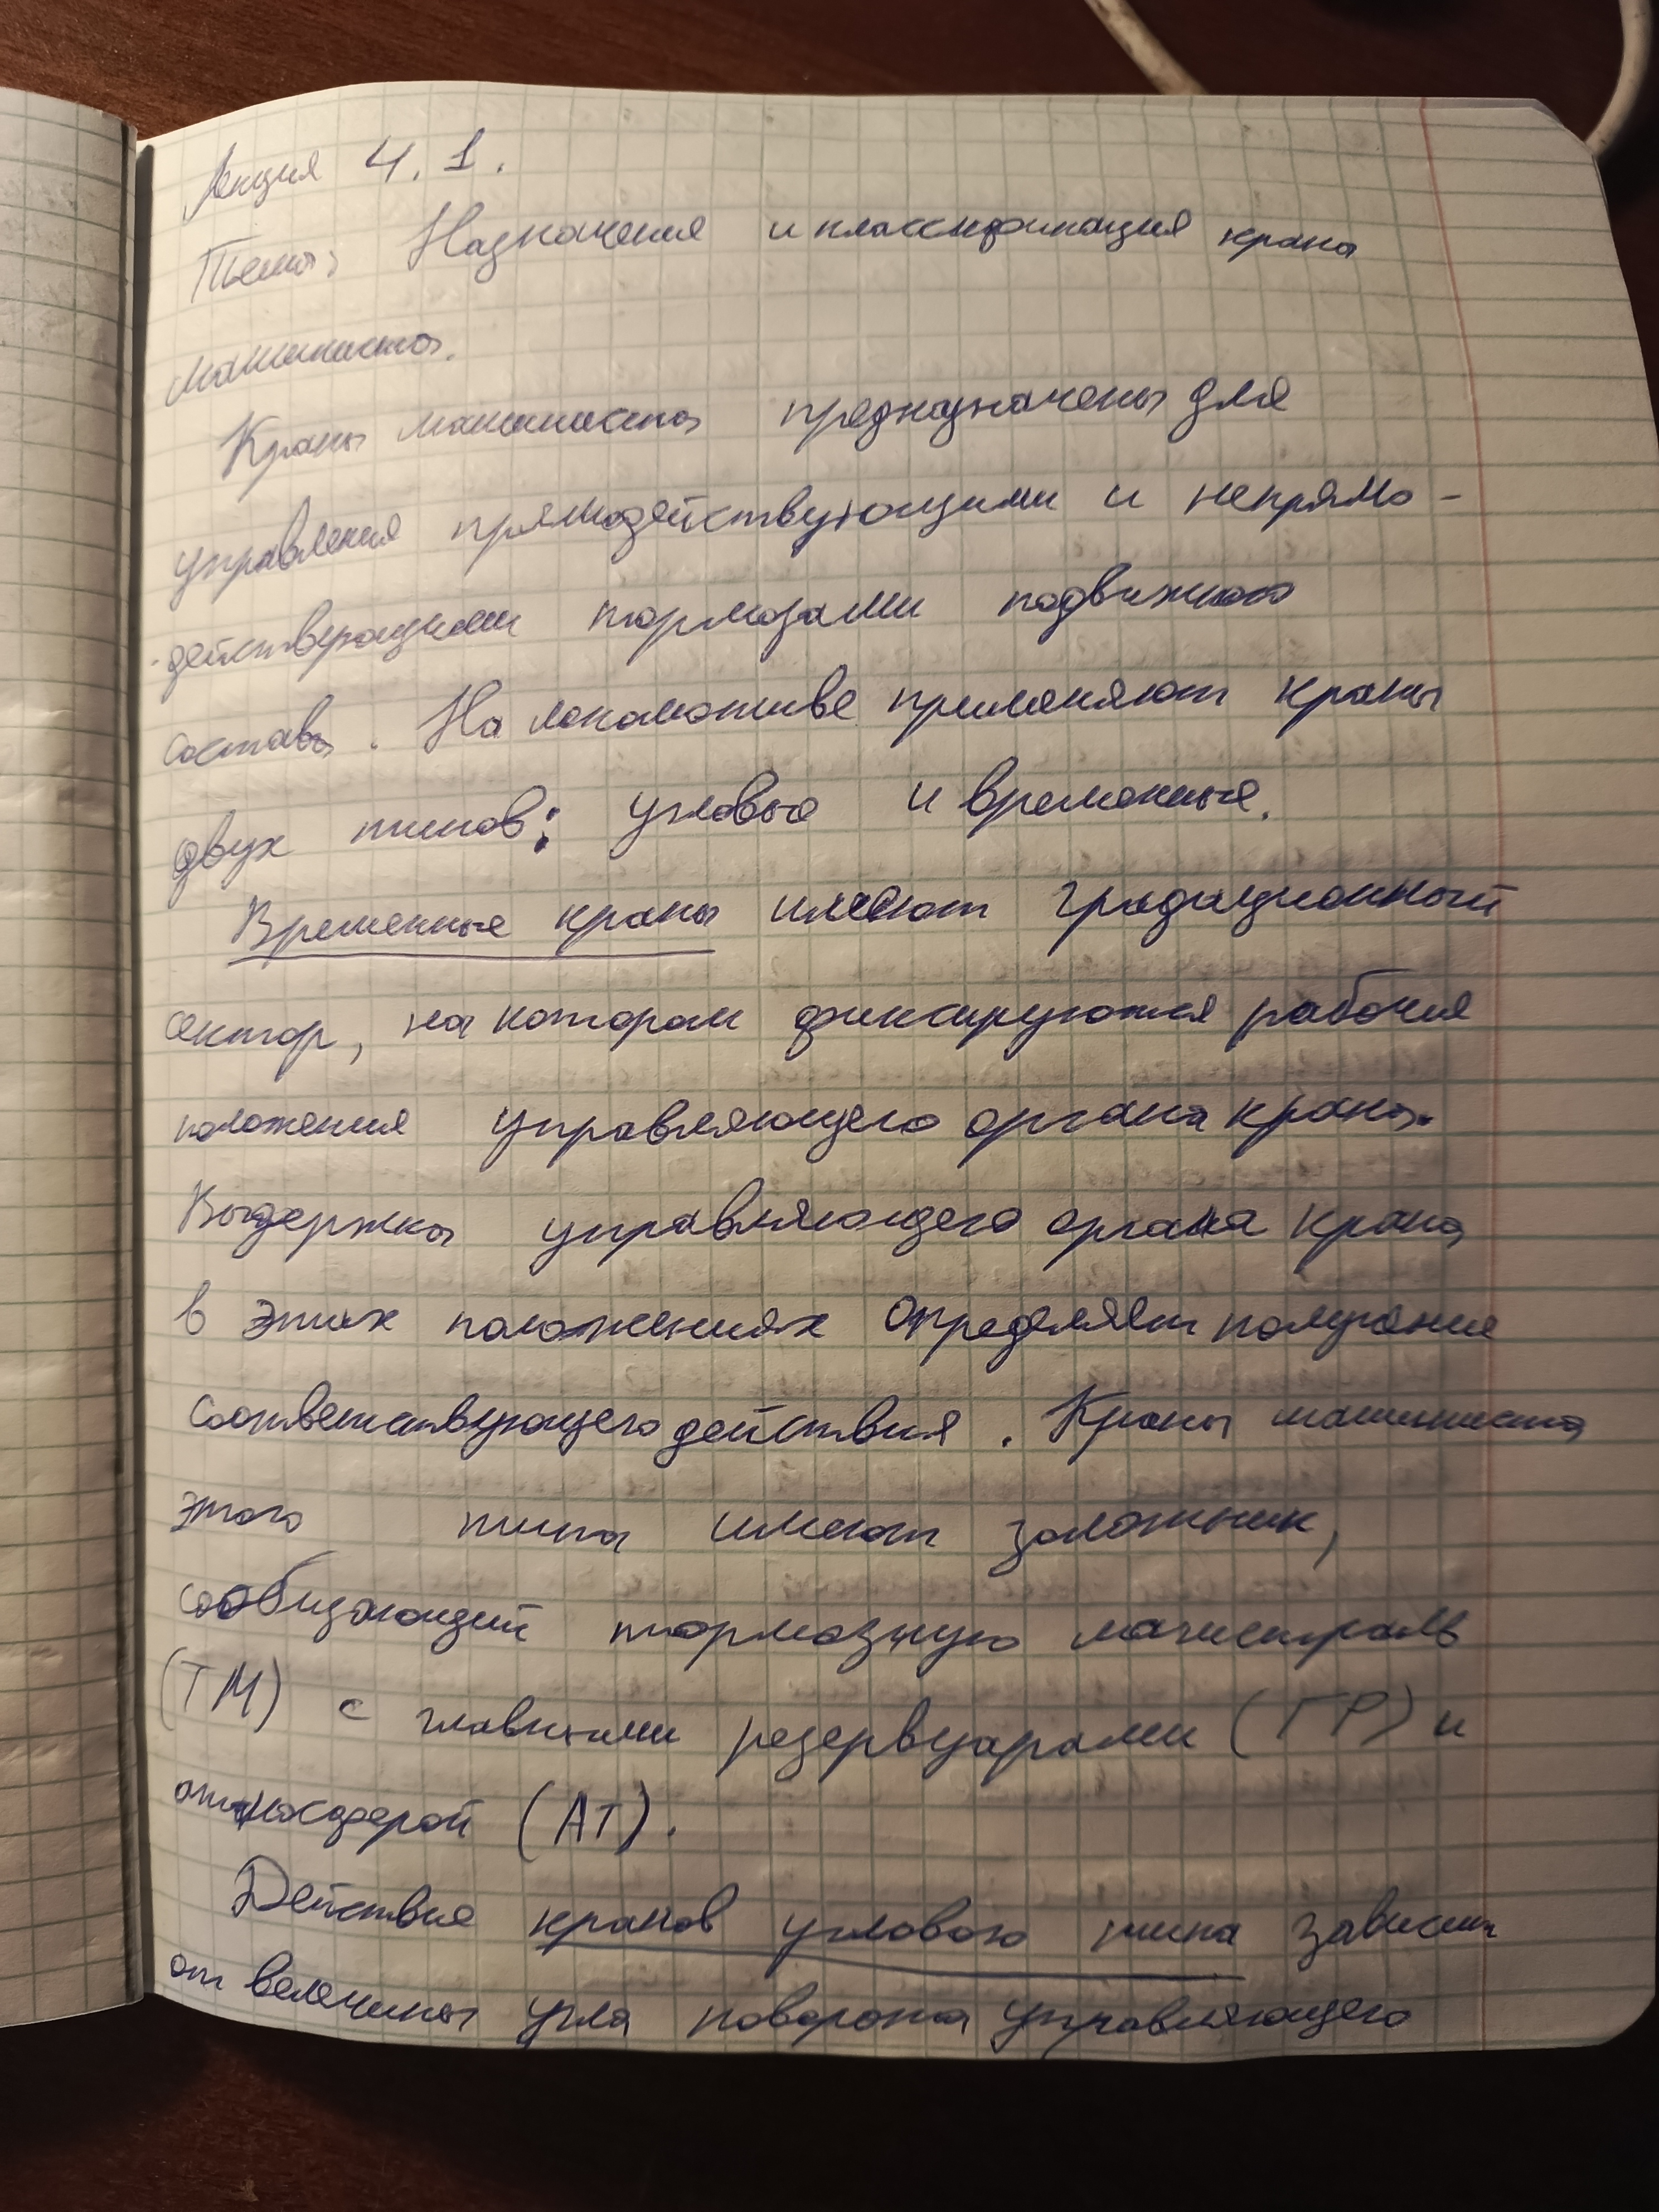 Лекция 4.1.
Тема: Назначения и классификация крана
машиниста.
Краны машиниста предназначены для
управления прямодействующими и непрямо-
-действующими тормозами подвижного
состава. На локомотиве применяют краны
двух типов: угловые и временные.
Временные краны имеют градационный
сектор, на котором фиксируются рабочие
положения управляющего органа крана.
Выдержка управляющего органа крана
в этих положениях определяет получение
соответствующего действия. Краны машиниста
этого типа имеют золотник,
сообщающий тормозную магистраль
(ТМ) с главными резервуарами (ГР) и
атмосферой (АТ).
Действие кранов углового типа зависит
от величины угла поворота управляющего